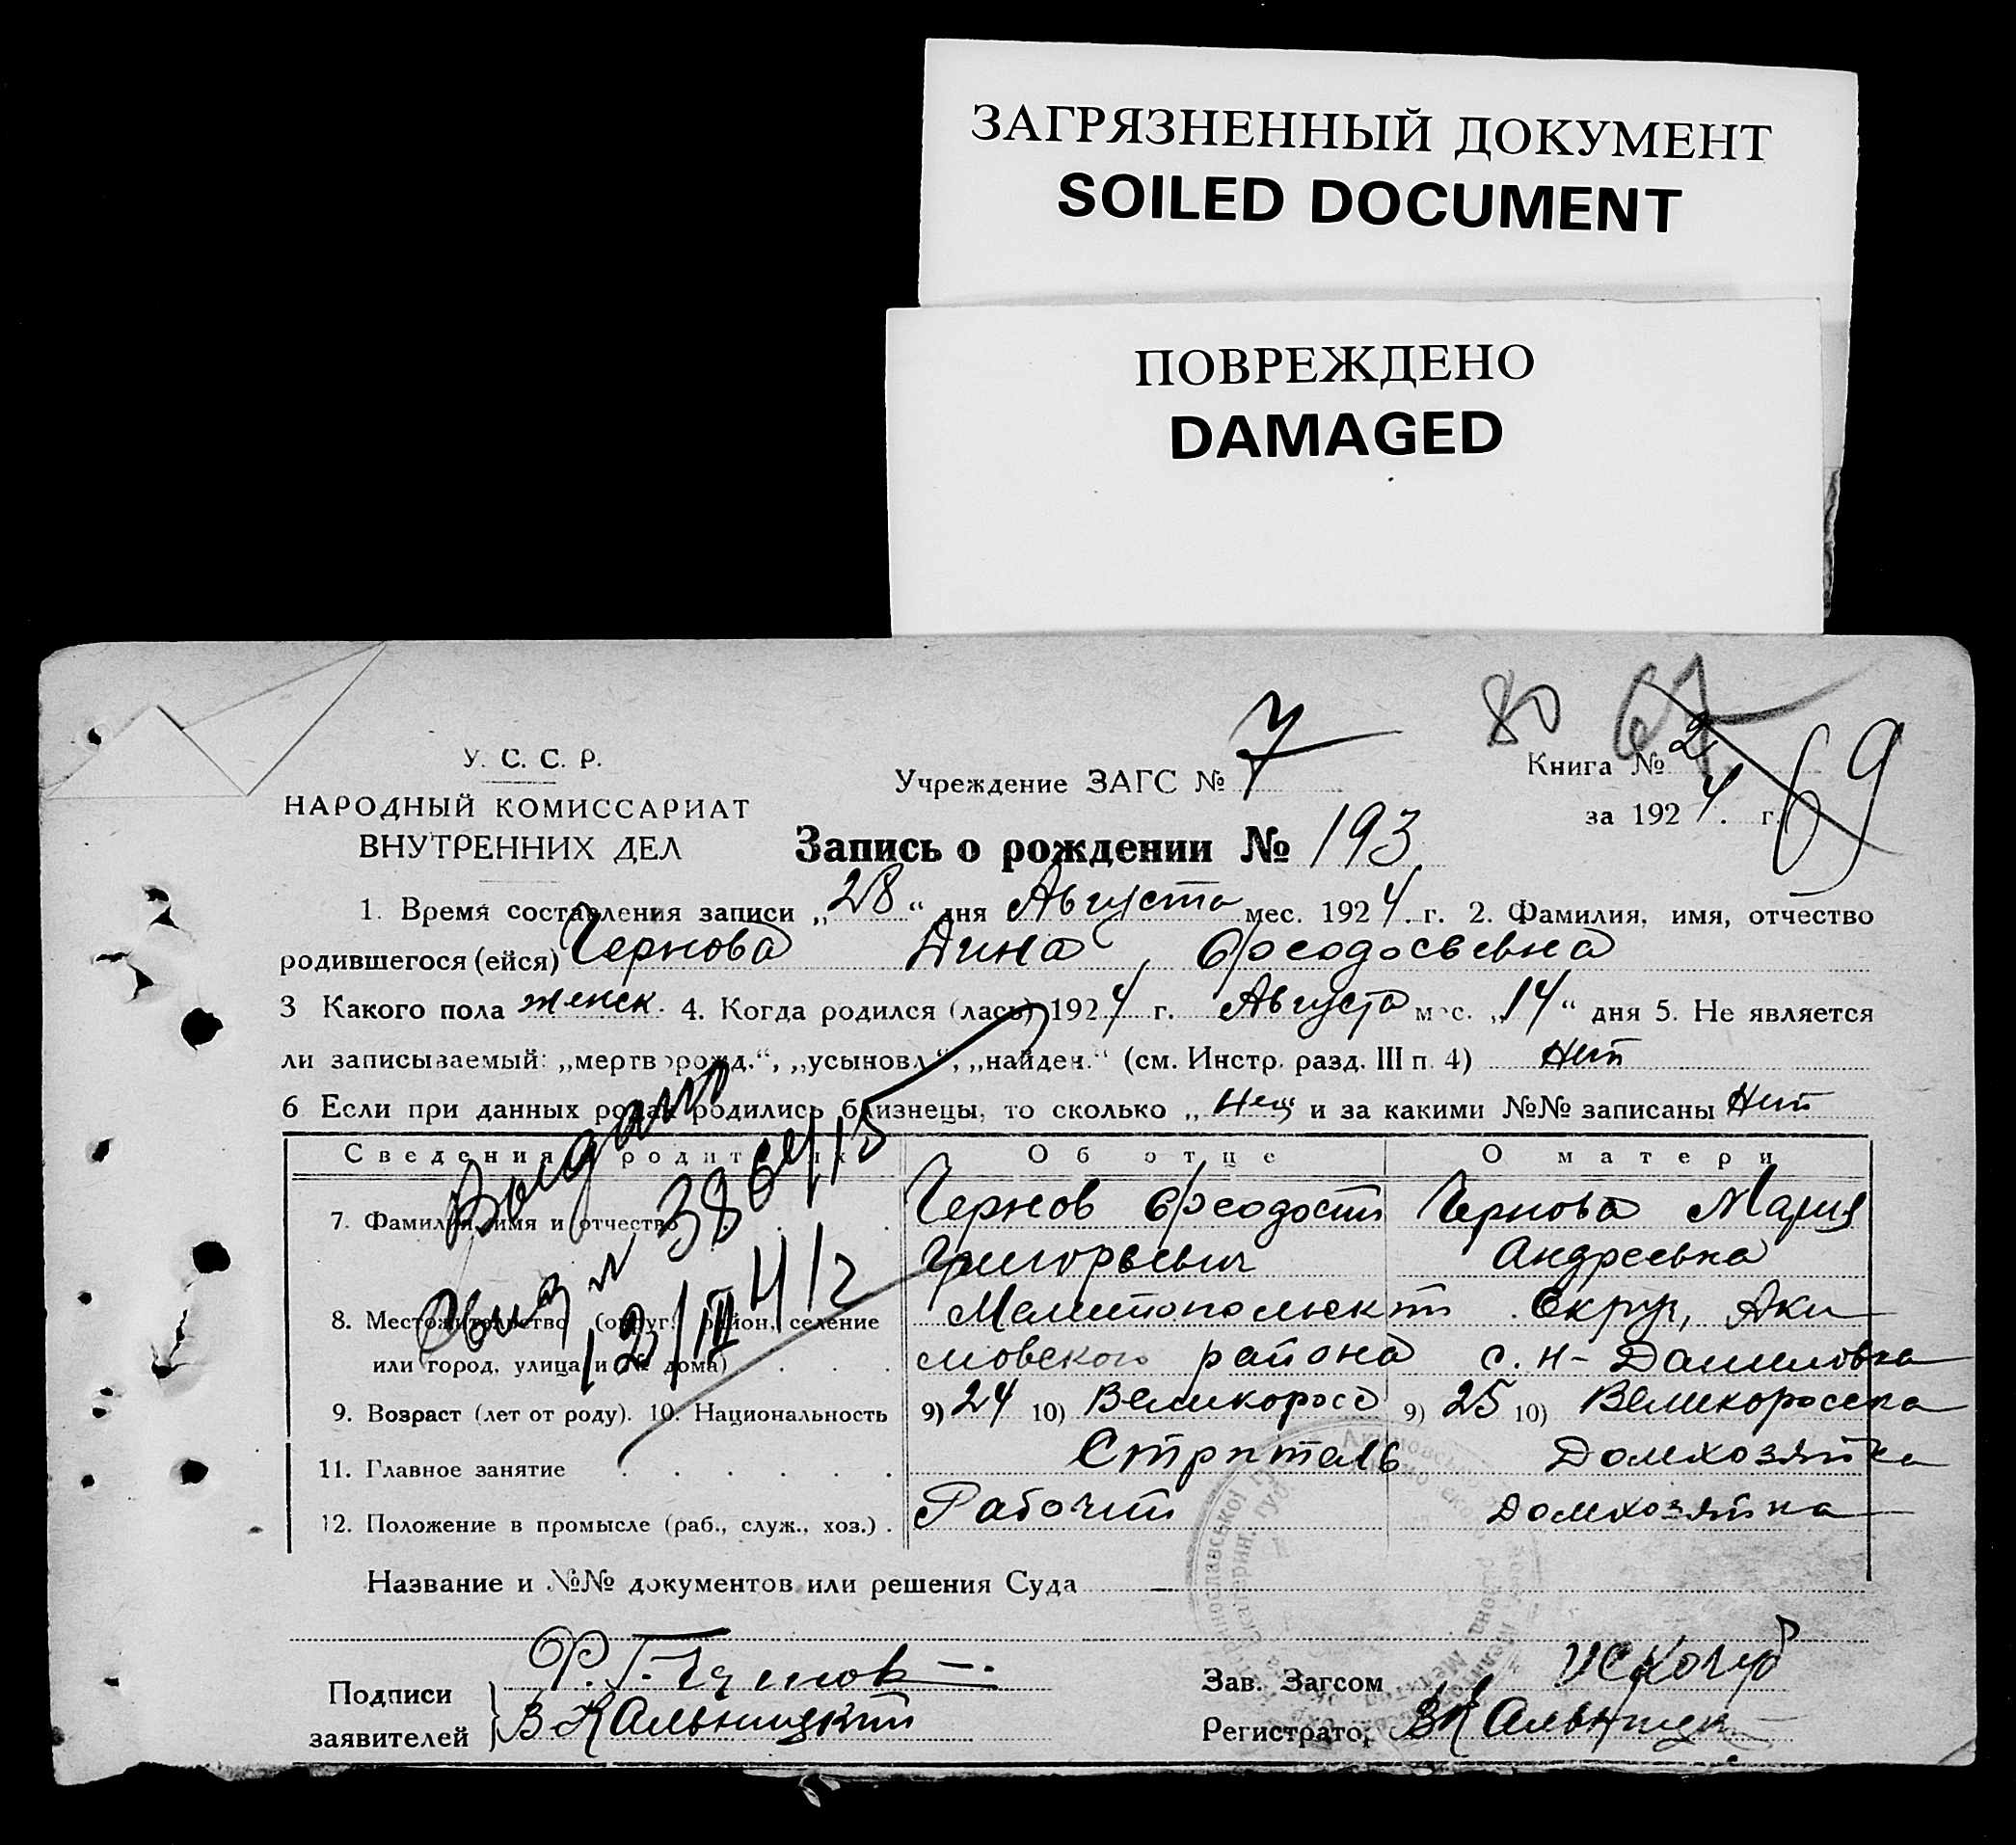 ЗАГРЯЗНЕННЫЙ ДОКУМЕНТ
SOILED DOCUMENT
ПОВРЕЖДЕНО
DAMAGED
80 67
69
У. С. С. Р.
НАРОДНЫЙ КОМИССАРИАТ
ВНУТРЕННИХ ДЕЛ
Учреждение ЗАГС № 7
Книга № 2
за 1924 г.
Запись о рождении № 193
1. Время составления записи „28“ дня Августа мес. 1924 г. 2. Фамилия, имя, отчество
родившегося (ейся) Чернова Дина, Феодосьевна
3 Какого пола женск. 4. Когда родился (лась) 1924 г. Августа мес. „14“ дня 5. Не является
ли записываемый: „мертворожд.“, „усыновл.“, „найден.“ (см. Инстр. разд. III п. 4) Нет
6 Если при данных родах родились близнецы, то сколько „Нет“ и за какими №№ записаны Нет
Сведения о родителях Об отце О матери
7. Фамилия, имя и отчество Чернов Феодосий Чернова Мария
Григорьевич Андреевна
8. Местожительство (округ, район, селение Мелитопольский Округ, Аки
или город, улица и № дома) мовского района с. Н-Даниловка
9. Возраст (лет от роду). 10. Национальность 9) 24 10) Великоросс 9) 25 10) Великоросска
11. Главное занятие Домхозяйка
12. Положение в промысле (раб., служ., хоз.). Рабочий Домхозяйка
Название и №№ документов или решения Суда
Подписи
заявителей
Ф. Г.
В Кальницкий
Зав. Загсом
Регистратор В Кальницк